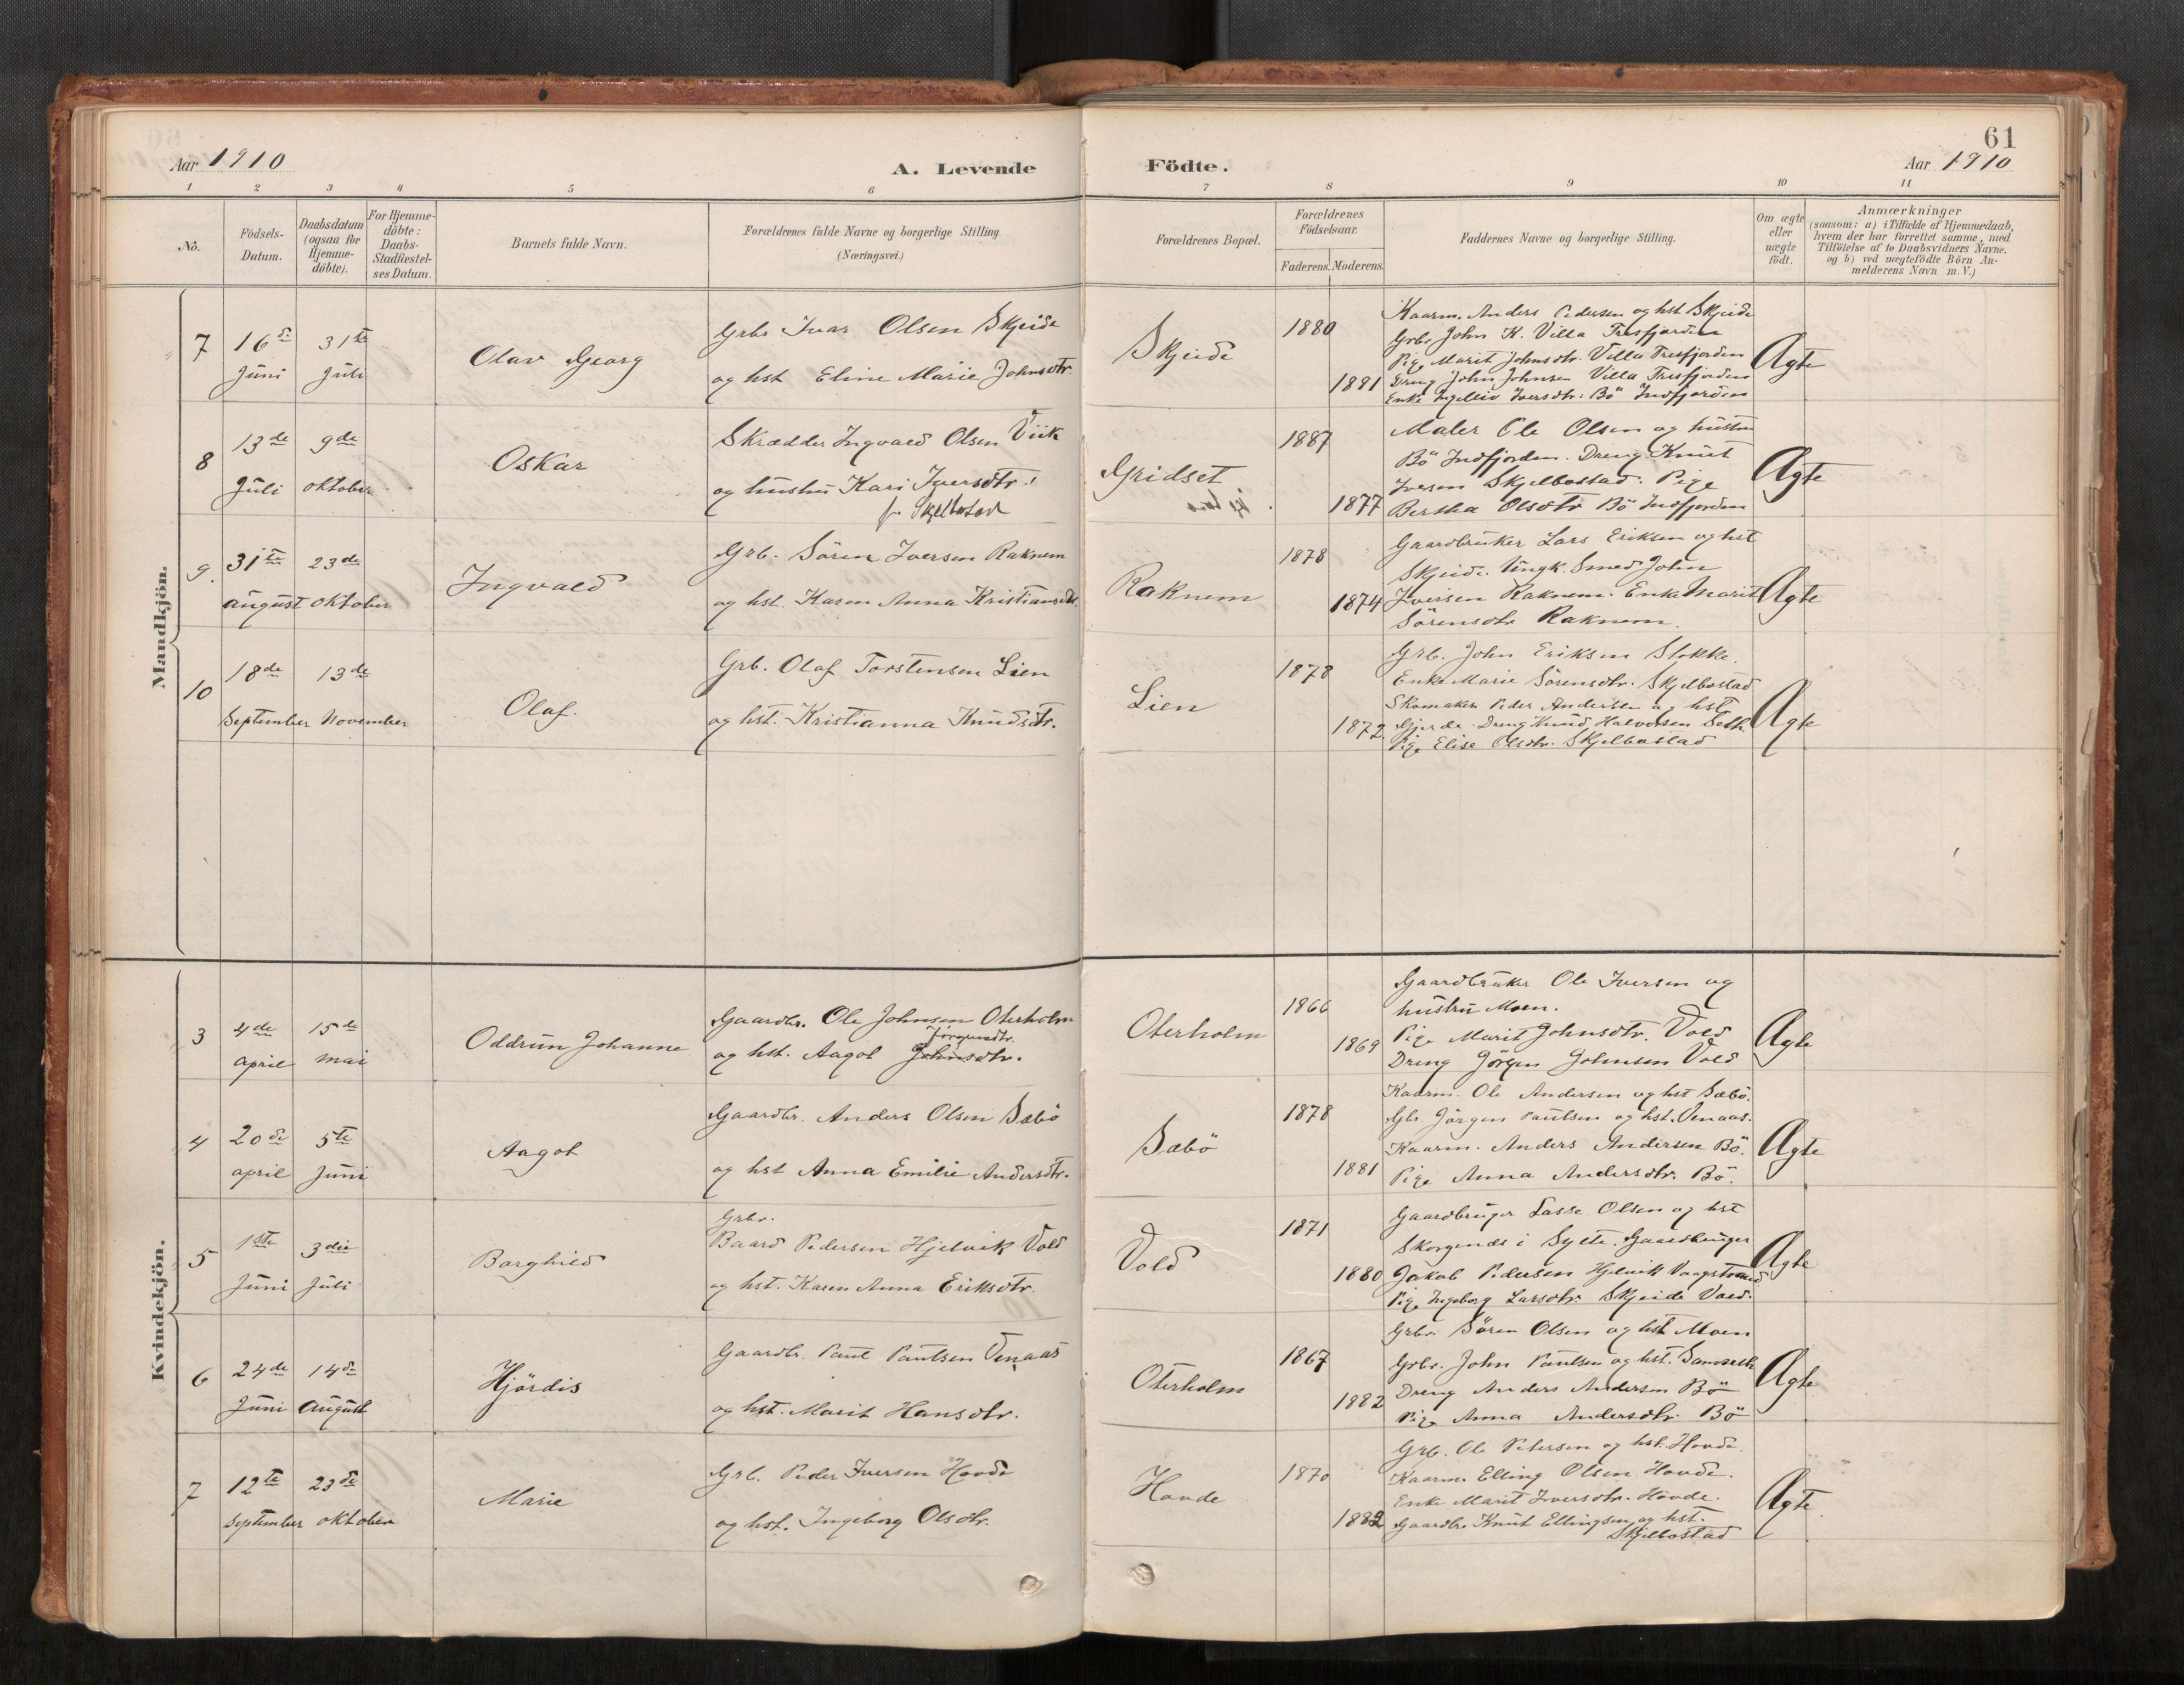 61
Aar 1910
A. Levende Födte.
Aar 1910
1 2 3 4 5 6 7 8 9 10 11
No.
Födsels-
Datum.
Daabsdatum
(ogsaa for
Hjemme-
döbte).
For Hjemme-
döbte:
Daabs-
Stadfæstel-
ses Datum.
Barnets fulde Navn.
Forældrenes fulde Navne og borgerlige Stilling.
(Næringsvei.)
Forældrenes Bopæl.
Forældrenes
Födselsaar.
Faderens. Moderens.
Faddernes Navne og borgerlige Stilling.
Om ægte
eller
uægte
födt.
Anmærkninger
(saasom: a) i Tilfælde af Hjemmedaab,
hvem der har forrettet samme, med
Tilföielse af to Daabsvidners Navne.
og b) ved uægtefödte Börn An-
melderens Navn m. V.)
Mandkjön.
7
16de
Juni
31te
Juli
Olav Georg
Grbr Ivar Olsen Skjeide
og hst Eline Marie Johnsdtr.
Skjeide
1880
1881
Kaarm. Anders Pedersen og hst Skjeide
Grbr John K. Villa Tresfjorden
Pige Marit Johnsdtr. Villa Tresfjorden
Dreng John Johnsen Villa Tresfjorden
Enke Ingeleiv Iversdtr. Bö Indfjorden
Ægte
8
13de
Juli
9de
oktober
Oskar
Skrædder Ingvald Olsen Viik
og hustru Kari Iversdtr.
f. Skjelbostad
Gridset
1887
1877
Maler Ole Olsen og hustru
Bö Indfjorden. Dreng Knut
Iversen Skjelbostad. Pige
Bertha Olsdtr Bö Indfjorden
Ægte
9.
31te
august
23de
oktober
Ingvald
Grb. Sören Iversen Raknem
og hst. Karen Anna Kristiansdtr.
Raknem
1878
1874
Gaardbruker Lars Eriksen og hst
Skjeide. Ungk. Smed John
Iversen Raknem. Enke Marit
Sörensdtr Raknem.
Ægte
10
18de
September
13de
November
Olaf.
Grb. Olaf Torstensen Lien
og hst. Kristianna Knudsdtr.
Lien
1878
1872
Grb. John Eriksen Stokke.
Enke Marie Sörensdtr. Skjelbostad
Skomaker Peder Andersen og hst
Gjerde. Dreng Knud Halvorsen
Pige Elise Olsdtr. Skjelbostad
Ægte
Kvindekjön.
3
4de
april
15de
mai
Oddrun Johanne
Gaardbr. Ole Johnsen Oterholm
Jörgensdtr.
og hst. Aagot Johnsdtr.
Oterholm
1866
1869
Gaardbruker Ole Iversen og
hustru Moen.
Pige Marit Johnsdtr. Vold
Dreng Jörgen Johnsen Vold
Ægte
4
20de
april
5te
Juni
Aagot
Gaardbr. Anders Olsen Sæbö
og hst Anna Emilie Andersdtr.
Sæbö
1878
1881
Kaarm. Ole Andersen og hst Sæbö.
Gbr. Jörgen Paulsen og hst. Venaas.
Kaarm. Anders Andersen Bö.
Pige Anna Andersdtr. Bö.
Ægte
5
1ste
Juni
3die
Juli
Borghild
Grbr.
Baard Pedersen Hjelvik Vold
og hst. Karen Anna Eriksdtr.
Vold
1871
1880
Gaardbruger Lasse Olsen og hst
Skorgenes i Sylte. Gaardbruger
Jakob Pedersen Hjelvik Vaagstrand
Pige Ingeborg Larsdtr. Skjeide Vold.
Ægte
6
24de
Juni
14de
August
Hjördis
Gaardbr. Paul Paulsen Venaas
og hst. Marit Hansdtr.
Oterholm
1867
1882
Grbr. Sören Olsen og hst Moen
Grbr. John Paulsen og hst.
Dreng Anders Andersen Bö
Pige Anna Andersdtr. Bö
Ægte
7
12te
September
23de
oktober
Marie
Grb. Peder Iversen Hovde
og hst. Ingeborg Olsdtr.
Hovde
1870
1882
Grb. Ole Petersen og hst. Hovde.
Kaarm. Elling Olsen Hovde.
Enke Marit Iversdtr. Hovde.
Gaardbr. Knut Ellingsen og hst.
Skjelbostad
Ægte